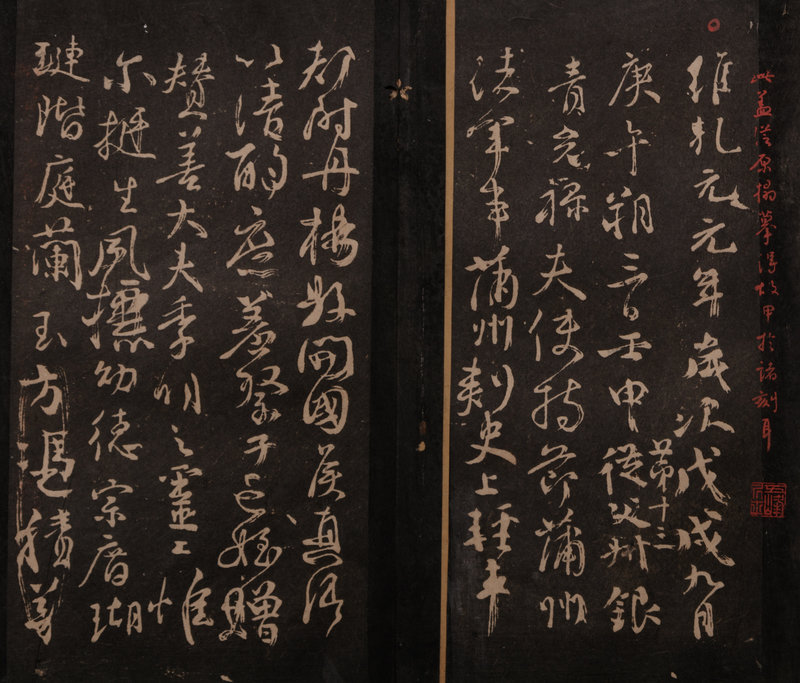 此蓋從原搨摹得故甲於諸刻耳
維乾元元年歲次戊戌九月
庚午朔三日壬申從父叔銀
第十三
青光祿夫使持節蒲州
諸軍事蒲州刺史上輕車
都尉丹楊縣開國侯真卿
以清酌庶羞祭于亡姪贈
贊善大夫季明之靈曰惟
爾挺生夙標幼德宗廟瑚
璉階庭蘭玉方憑積善